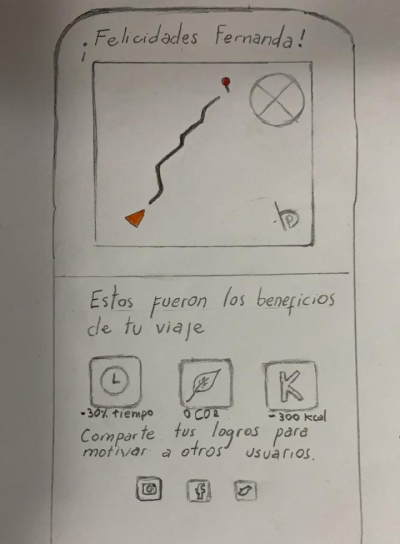 ¡Felicidades Fernanda!
Estos fueron los beneficios
de tu viaje
K
-30% tiempo
0 CO2
-300 kcal
Comparte tus logros para
motivar a otros usuarios.